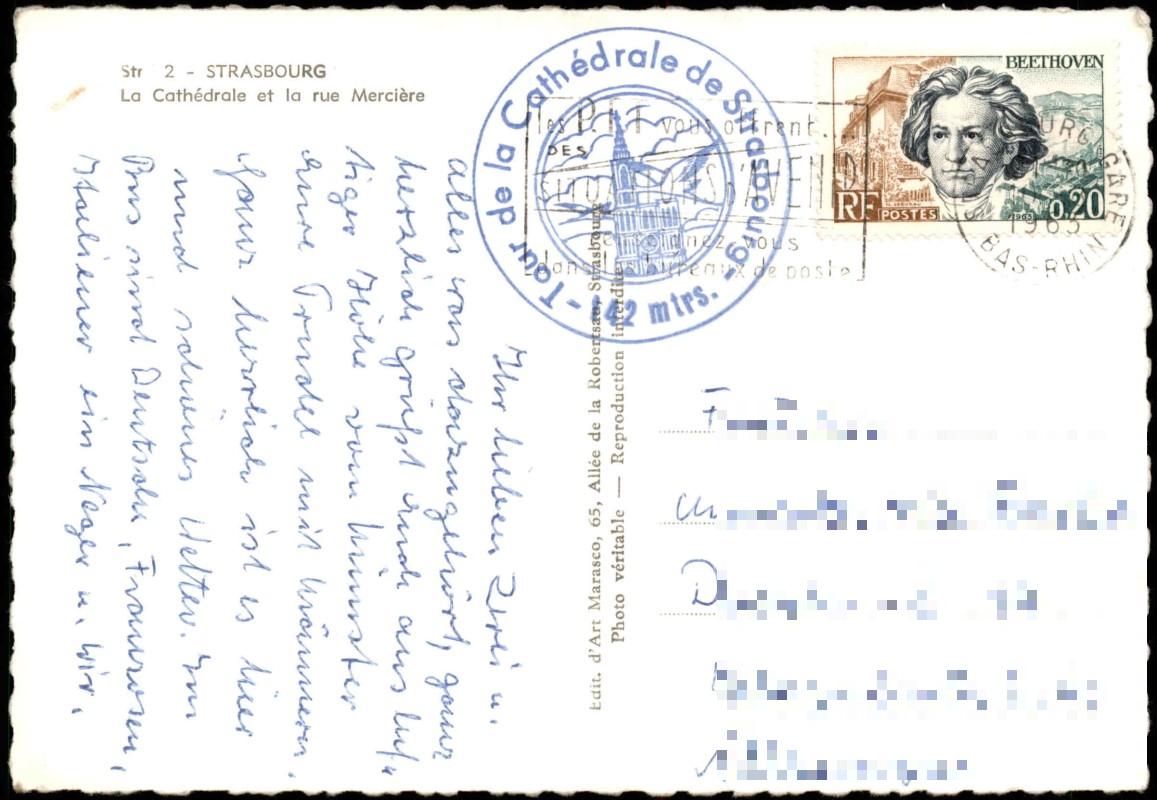 Str 2 - STRASBOURG
La Cathédrale et la rue Mercière
Tour de la Cathédrale de Strasbourg - 142 mtrs. -
les P.T.T vous offrent...
DES
D'AVENIR
renseignez vous
dans les bureaux de poste
BEETHOVEN
RF POSTES 0,20
1963
GARE
1963
BAS-RHIN
Edit. d'Art Marasco, 65, Allée de la Robertsau, Strasbourg
Photo véritable — Reproduction interdite
Ihr lieben Zwei u.
alles was dazugehört, ganz
herzlich grüßt Euch aus luf-
tiger Höhe vom Münster
Eure Trudel mit Männern.
Ganz herrlich ist es hier
und schönes Wetter. Im
Bus sind Deutsche, Franzosen,
Italiener ein Neger u. wir.